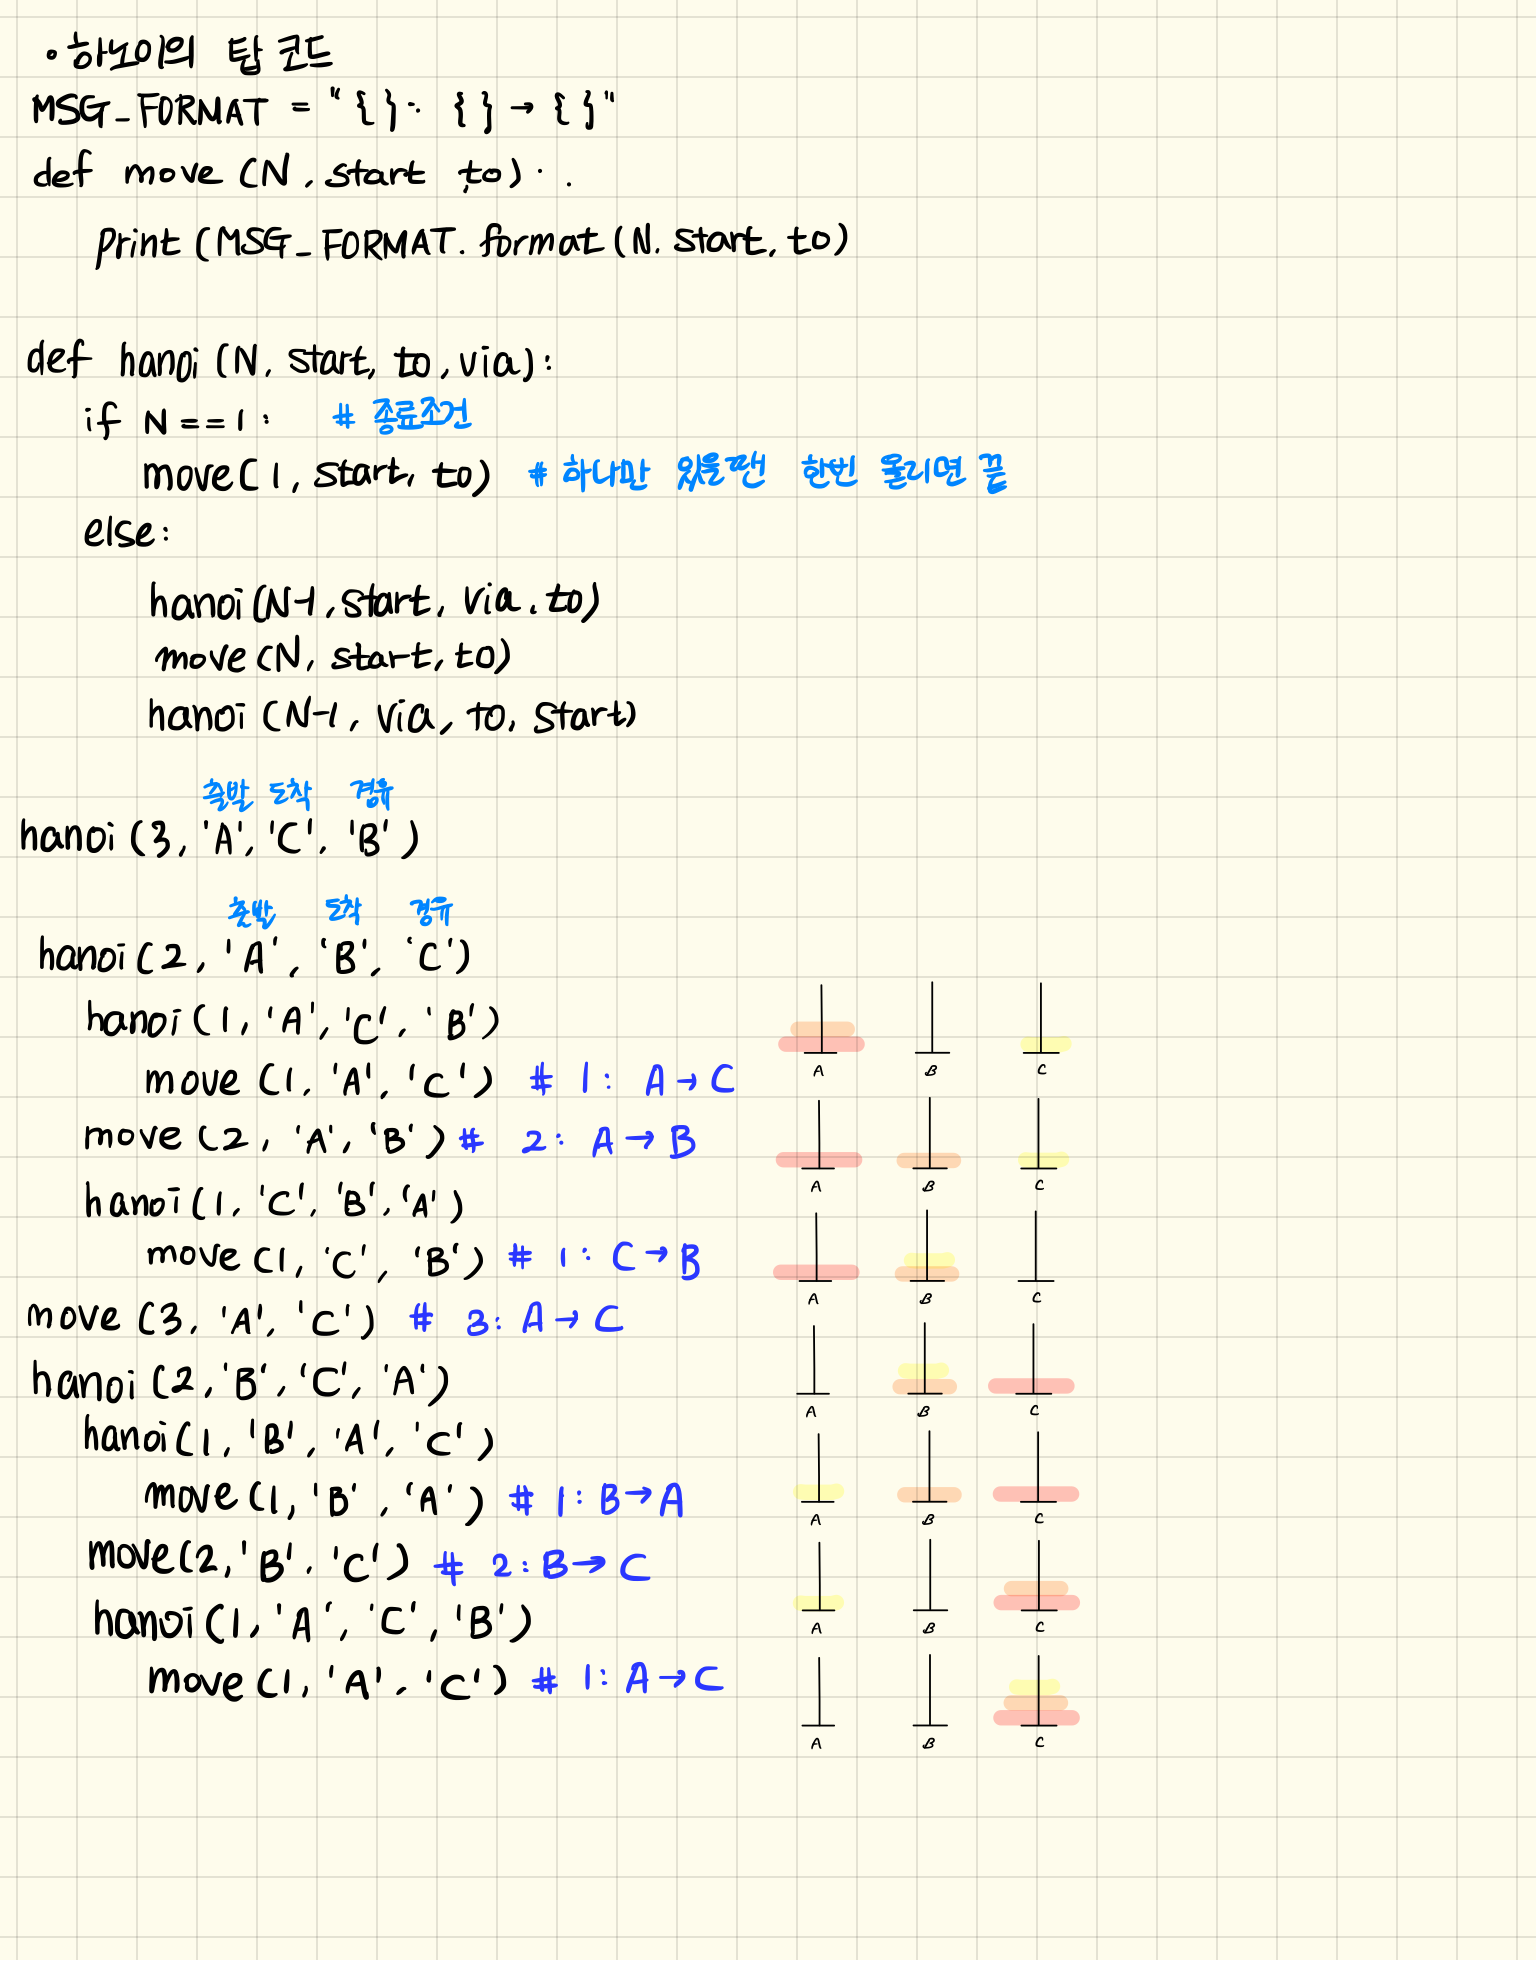 • 하노이의 탑 코드
MSG_FORMAT = "{}: {} → {}"
def move (N, start, to):
print (MSG_FORMAT. format (N. start, to)
def hanoi (N, start, to, via):
if N == 1: # 종료조건
move (1, start, to) # 하나만 있을땐 한번 옮기면 끝
else:
hanoi (N-1, start, via, to)
move (N, start, to)
hanoi (N-1, via, to, start)
출발 도착 경유
hanoi (3, 'A', 'C', 'B')
출발 도착 경유
hanoi (2, 'A', 'B', 'C')
hanoi (1, 'A', 'C', 'B')
move (1, 'A', 'C') # 1: A → C
A B C
move (2, 'A', 'B') # 2: A → B
A B C
hanoi (1, 'C', 'B', 'A')
move (1, 'C', 'B') # 1: C → B
A B C
move (3, 'A', 'C') # 3: A → C
hanoi (2, 'B', 'C', 'A')
A B C
hanoi (1, 'B', 'A', 'C')
move (1, 'B', 'A') # 1: B → A
A B C
move (2, 'B', 'C') # 2: B → C
hanoi (1, 'A', 'C', 'B')
A B C
move (1, 'A', 'C') # 1: A → C
A B C